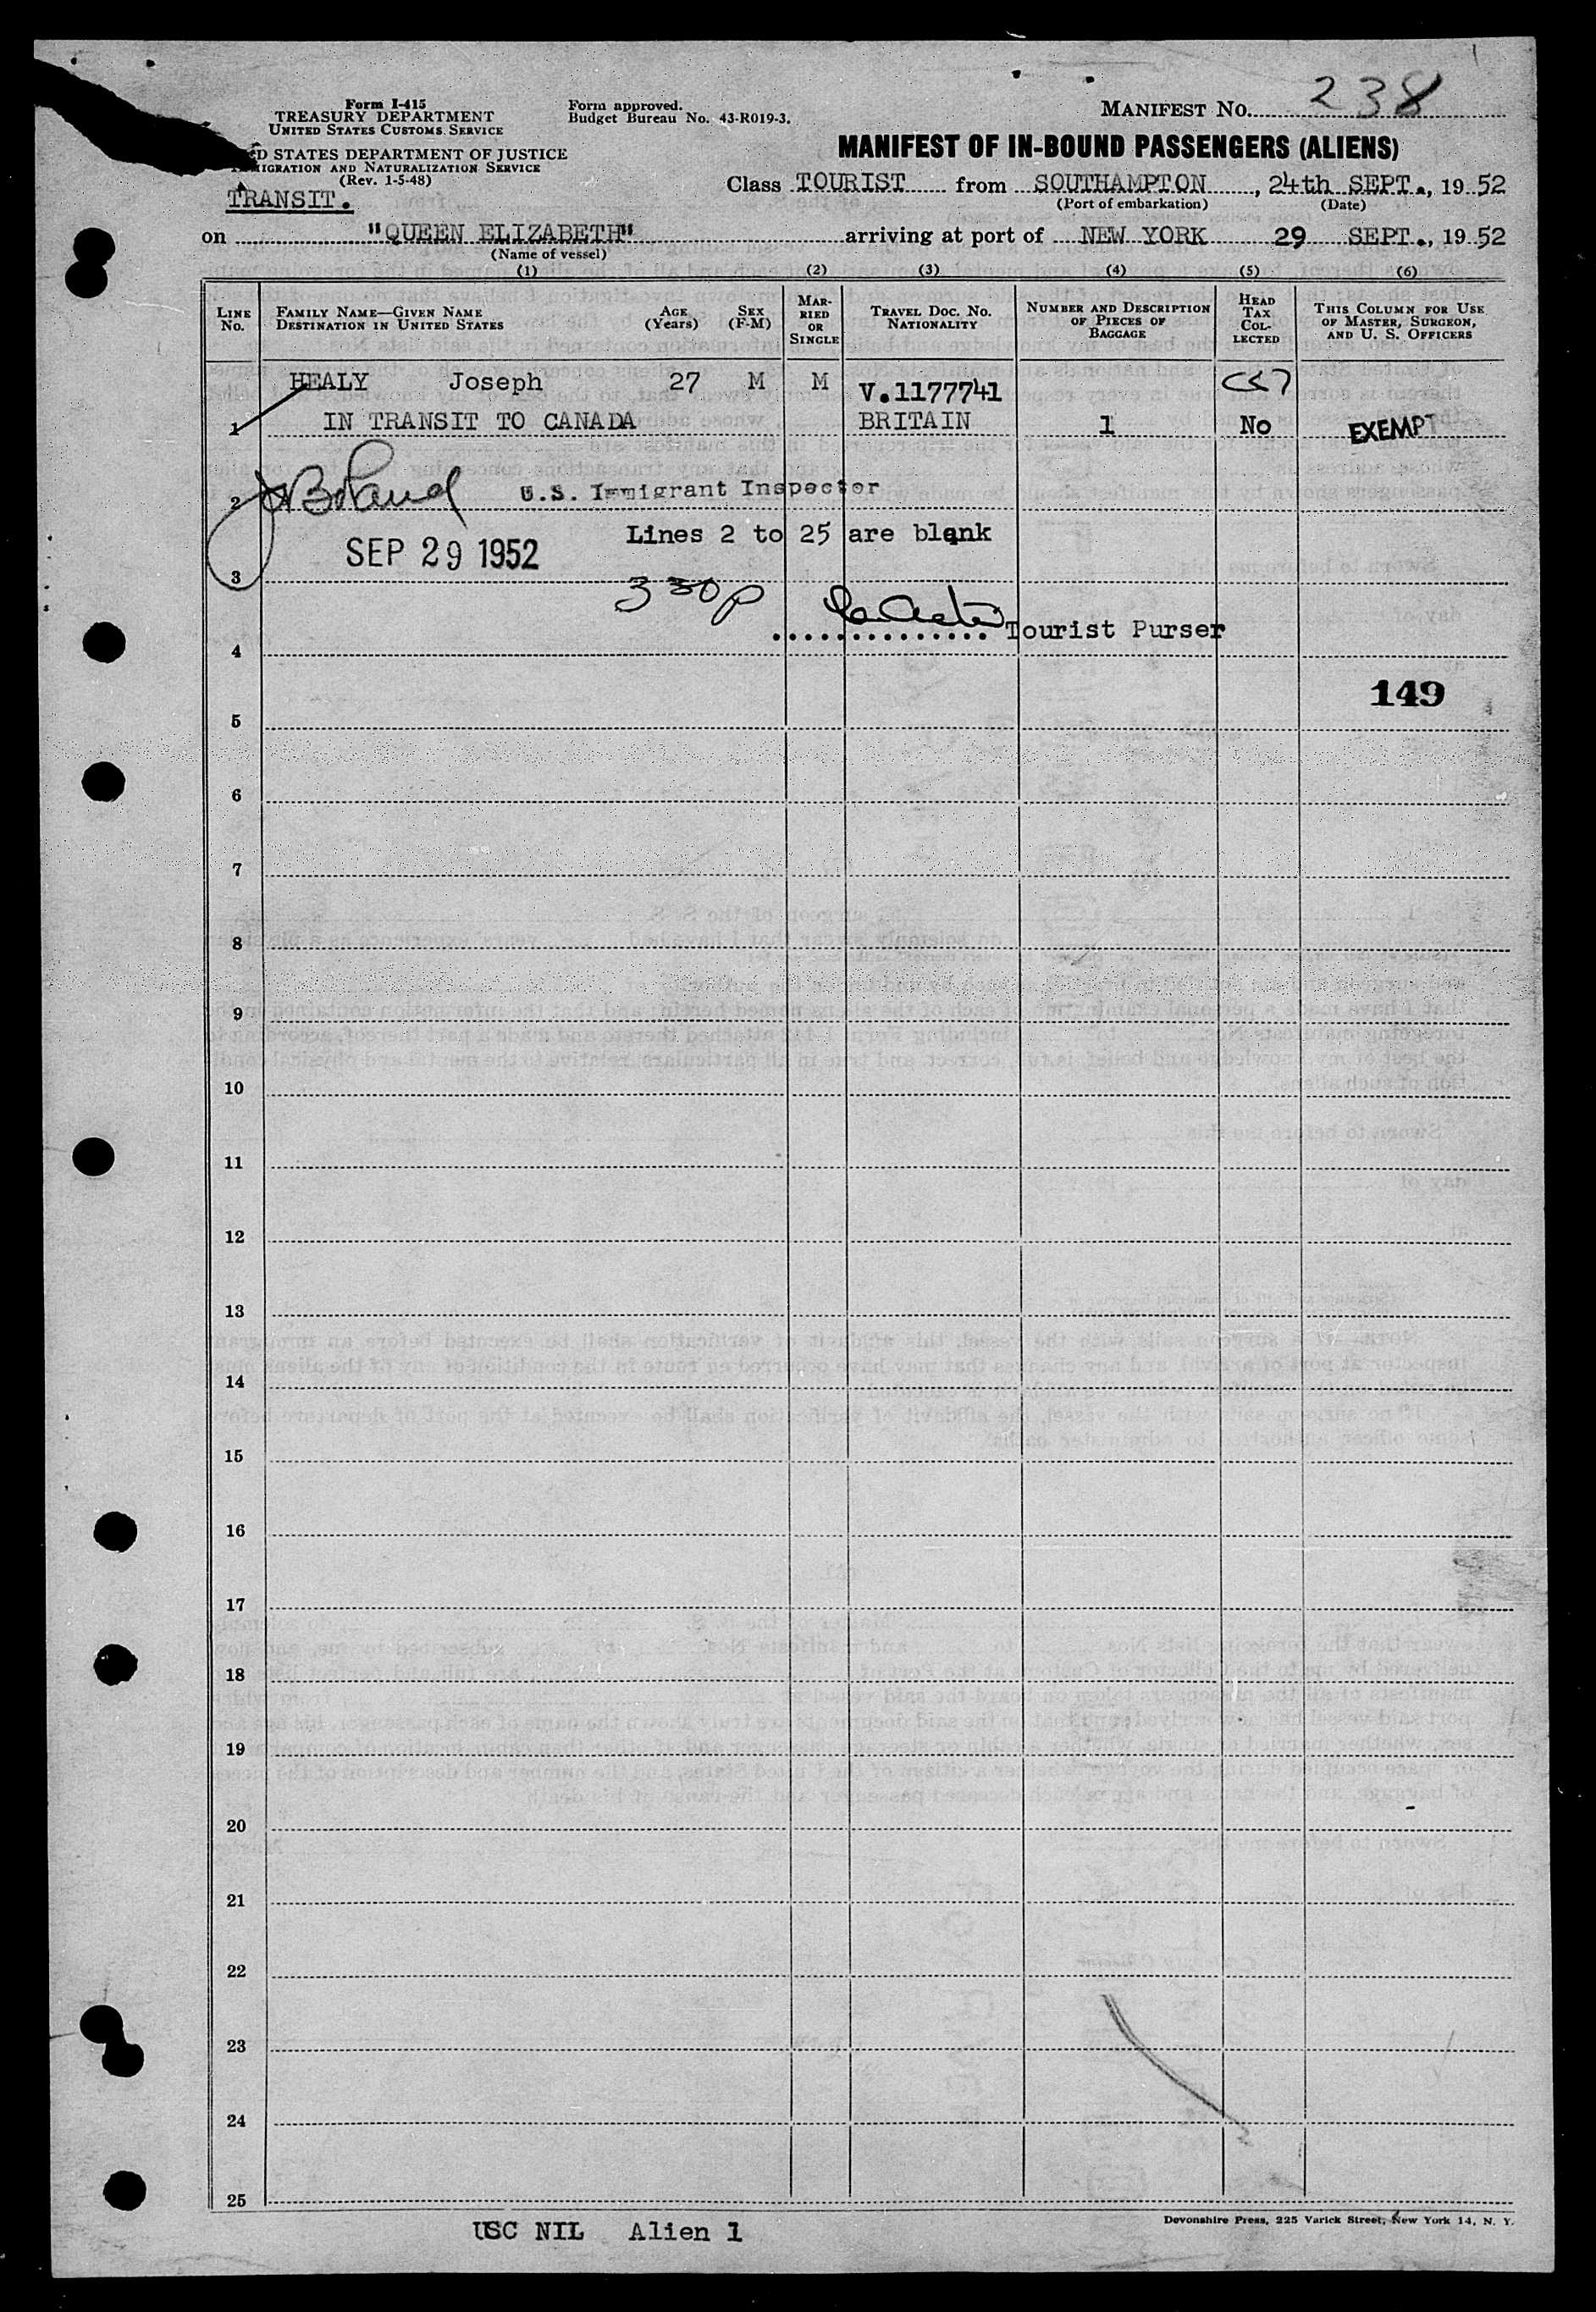 Form I-415
TREASURY DEPARTMENT
UNITED STATES CUSTOMS SERVICE
D STATES DEPARTMENT OF JUSTICE
IGRATION AND NATURALIZATION SERVICE
(Rev. 1-5-48)
TRANSIT.
Form approved.
Budget Bureau No. 43-R019-3.
MANIFEST No. 238
MANIFEST OF IN-BOUND PASSENGERS (ALIENS)
Class TOURIST from SOUTHAMPTON, 24th SEPT., 19 52
(Port of embarkation) (Date)
on "QUEEN ELIZABETH" arriving at port of NEW YORK 29 SEPT., 19 52
(Name of vessel)
(1) (2) (3) (4) (5) (6)
LINE No. FAMILY NAME—GIVEN NAME DESTINATION IN UNITED STATES AGE (Years) SEX (F-M) MARRIED OR SINGLE TRAVEL DOC. NO. NATIONALITY NUMBER AND DESCRIPTION OF PIECES OF BAGGAGE HEAD TAX COLLECTED THIS COLUMN FOR USE OF MASTER, SURGEON, AND U. S. OFFICERS
HEALY Joseph 27 M M V.1177741
1 IN TRANSIT TO CANADA BRITAIN 1 No EXEMPT
2 Boland U.S. Immigrant Inspector
Lines 2 to 25 are blank
SEP 29 1952
3
330p
Tourist Purser
4
149
5
6
7
8
9
10
11
12
13
14
15
16
17
18
19
20
21
22
23
24
25
USC NIL Alien 1
Devonshire Press, 225 Varick Street, New York 14, N. Y.